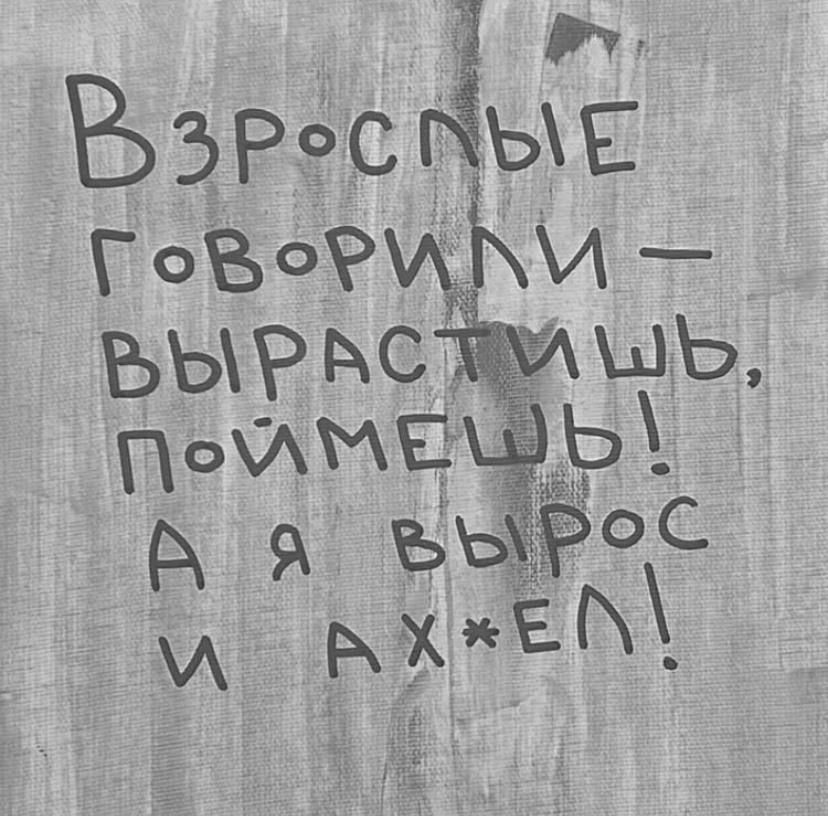 Взрослые
говорили —
вырастишь,
поймешь!
А я вырос
и ах*ел!